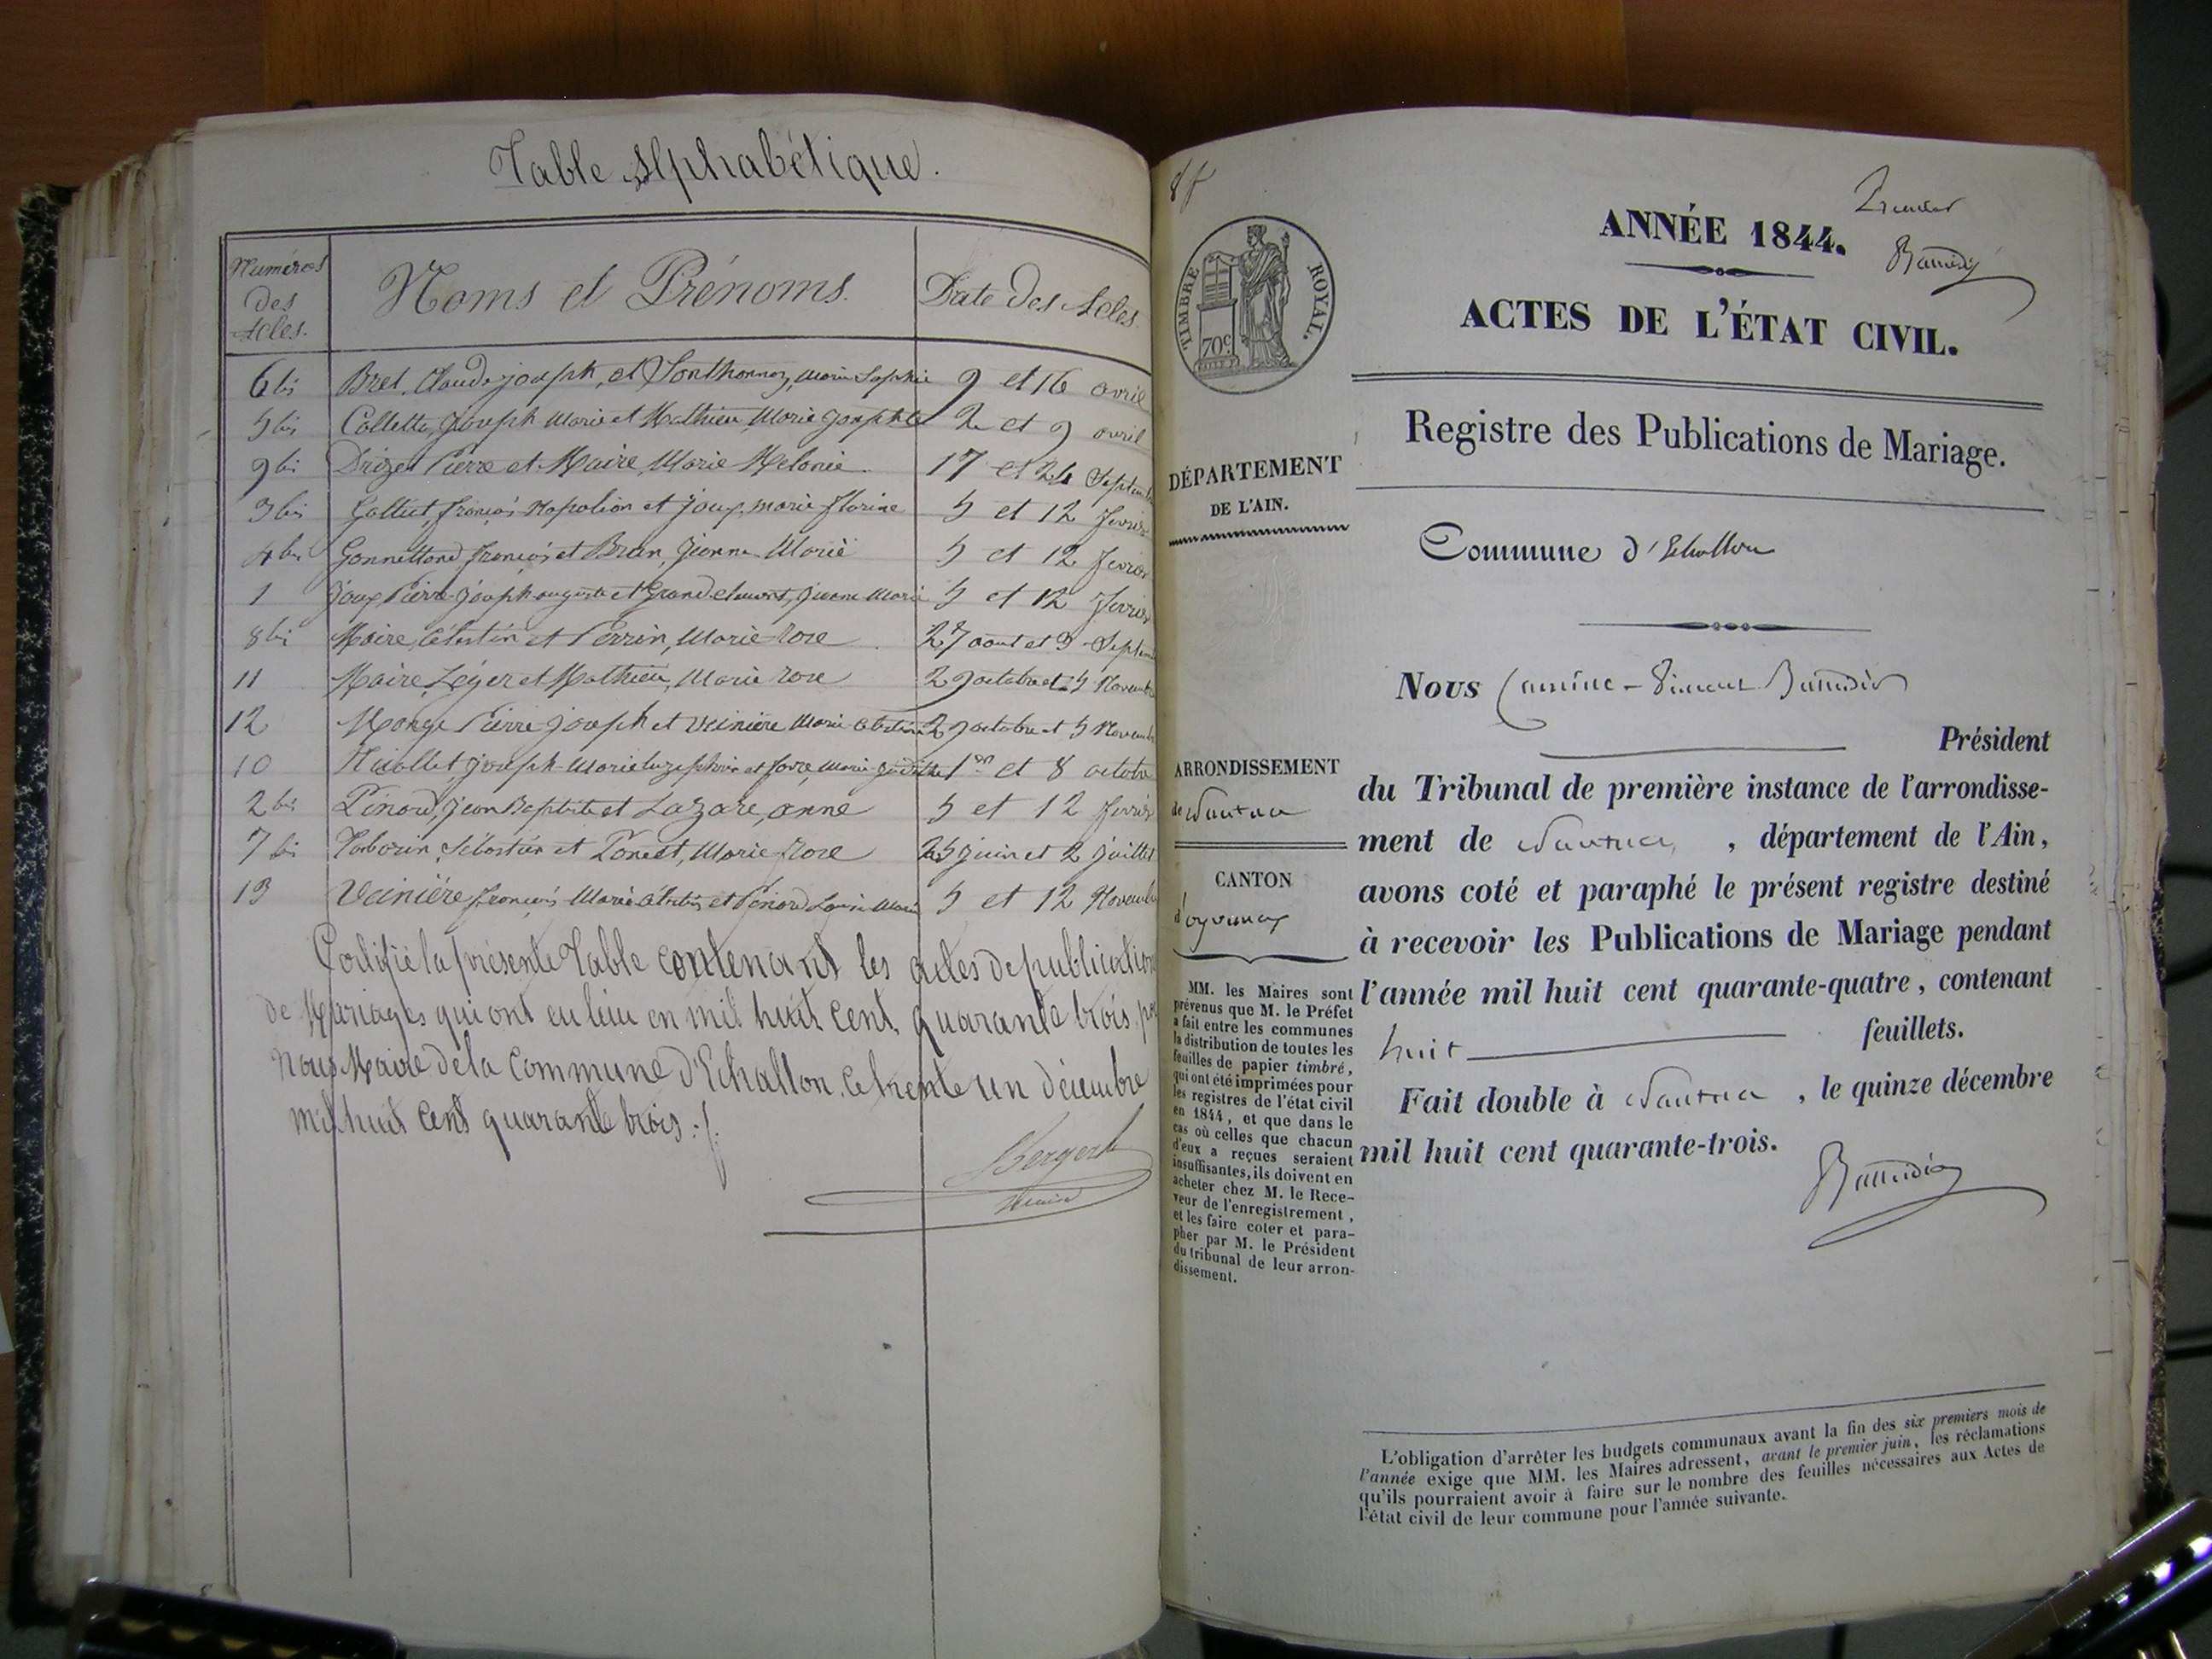 Table Alphabétique.
Numéros des Actes.
Noms et Prénoms.
Date des Actes.
6 bis Bret, Claude joseph, et Sonthonnax, Marie Sophie 9 et 16 avril
5 bis Collette, Joseph Marie et Mathieu, Marie Josephte 2 et 9 avril
9 bis Pierre et Maire, Marie Melanie 17 et 24 Septembre
3 bis françois Napoléon et Joux, marie florine 5 et 12 fevrier
4 bis françois et Brun, Jeanne Marie 5 et 12 fevrier
1 Joux Pierre-Joseph auguste et Grandclement, Jeanne Marie 5 et 12 fevrier
8 bis Maire, Célestin et Perrin, Marie rose 27 aout et 3 Septembre
11 Maire, Léger et Mathieu, Marie rose 29 octobre et 5 Novembre
12 Monge Pierre joseph et Veinière Marie 29 octobre et 5 Novembre
10 joseph Marie et Marie 1er et 8 octobre
2 bis Pinard, Jean Baptiste et Lazare, anne 5 et 12 fevrier
7 bis Taborin, Sébastien et Poncet, Marie Rose 25 juin et 2 juillet
13 Veinière françois Marie et Pinard Marie 5 et 12 Novembre
Certifié la présente Table contenant les actes de publication
de Mariages qui ont eu lieu en mil huit cent quarante trois par
Nous Maire de la Commune d'Echallon, ce trente un décembre
mil huit cent quarante trois ./.
8
ANNÉE 1844.
ACTES DE L'ÉTAT CIVIL.
TIMBRE ROYAL.
70c
Registre des Publications de Mariage.
DÉPARTEMENT
DE L'AIN.
Commune d'Echallon
Nous
Président
ARRONDISSEMENT
de Nantua
du Tribunal de première instance de l'arrondisse-
ment de Nantua, département de l'Ain,
CANTON
d'oyonnax
avons coté et paraphé le présent registre destiné
à recevoir les Publications de Mariage pendant
l'année mil huit cent quarante-quatre, contenant
huit feuillets.
Fait double à Nantua, le quinze décembre
mil huit cent quarante-trois.
MM. les Maires sont
prévenus que M. le Préfet
a fait entre les communes
la distribution de toutes les
feuilles de papier timbré,
qui ont été imprimées pour
les registres de l'état civil
en 1844, et que dans le
cas où celles que chacun
d'eux a reçues seraient
insuffisantes, ils doivent en
acheter chez M. le Rece-
veur de l'enregistrement,
et les faire coter et para-
pher par M. le Président
du tribunal de leur arron-
dissement.
L'obligation d'arrêter les budgets communaux avant la fin des six premiers mois de
l'année exige que MM. les Maires adressent, avant le premier juin, les réclamations
qu'ils pourraient avoir à faire sur le nombre des feuilles nécessaires aux Actes de
l'état civil de leur commune pour l'année suivante.